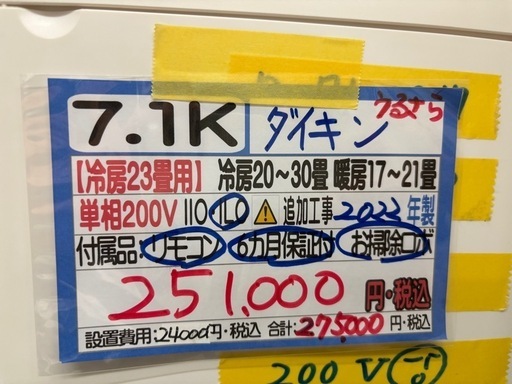 7.1K ダイキン うるさら
【冷房23畳用】 冷房20～30畳 暖房17～21畳
単相200V IIO ILO ⚠ 追加工事 2022年製
付属品:リモコン 6カ月保証付 お掃除ロボ
251,000 円・税込
設置費用:24000円・税込 合計:275000円・税込
200V